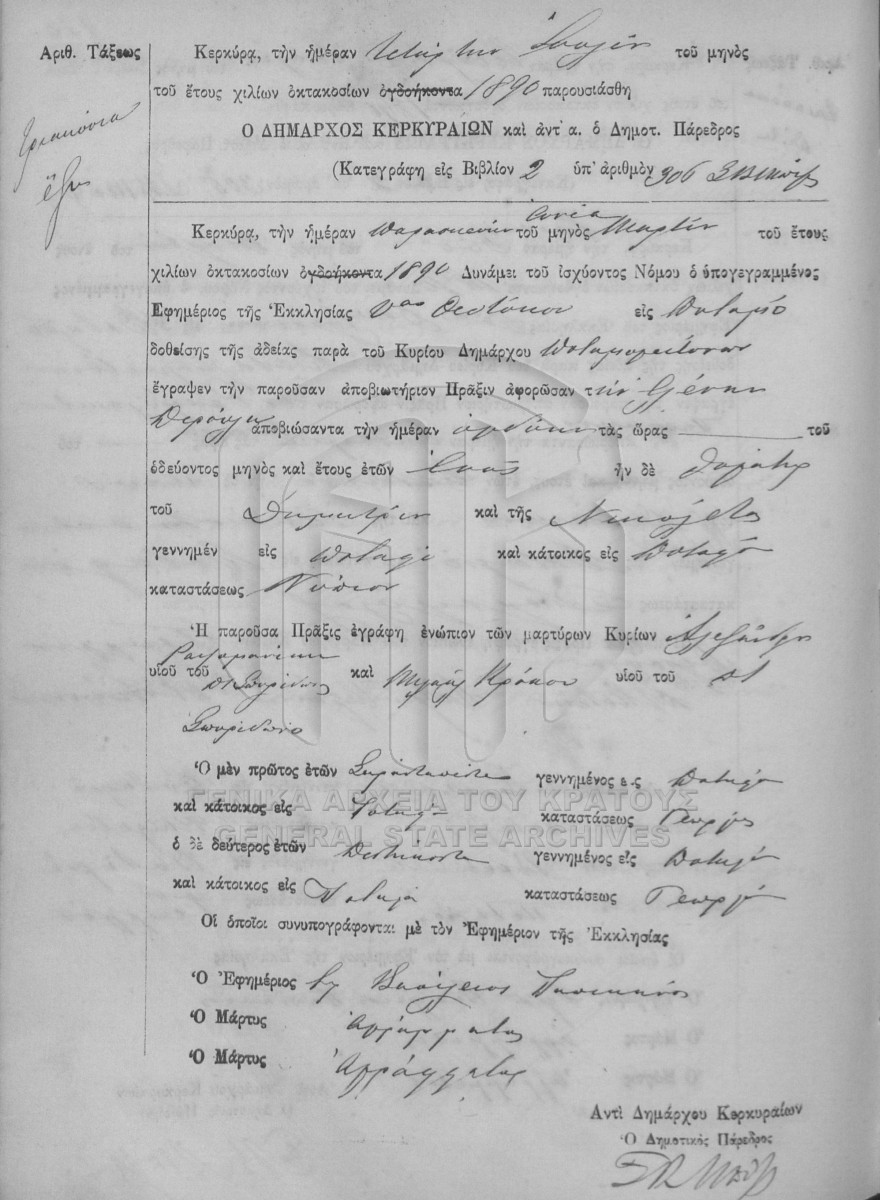 Ἀριθ. Τάξεως
Τριακόσια
ἕξη
Κερκύρα, τὴν ἡμέραν Τετάρτην τοῦ μηνὸς
τοῦ ἔτους χιλίων ὀκτακοσίων ὀγδοήκοντα 1890 παρουσιάσθη
Ὁ ΔΗΜΑΡΧΟΣ ΚΕΡΚΥΡΑΙΩΝ καὶ ἀντ' α. ὁ Δημοτ. Πάρεδρος
(Κατεγράφη εἰς Βιβλίον 2 ὑπ' ἀριθμὸν 306
Κερκύρα, τὴν ἡμέραν Παρασκευὴν ἐννέα τοῦ μηνὸς Μαρτίου τοῦ ἔτους
χιλίων ὀκτακοσίων ὀγδοήκοντα 1890 Δυνάμει τοῦ ἰσχύοντος Νόμου ὁ ὑπογεγραμμένος
Ἐφημέριος τῆς Ἐκκλησίας Θεοτόκου εἰς Ποταμὸ
δοθείσης τῆς ἀδείας παρὰ τοῦ Κυρίου Δημάρχου
ἔγραψεν τὴν παροῦσαν ἀποβιωτήριον Πρᾶξιν ἀφορῶσαν τὴν Ἑλένην
ἀποβιώσαντα τὴν ἡμέραν ὀγδόην τὰς ὥρας τοῦ
ὁδεύοντος μηνὸς καὶ ἔτους ἐτῶν ἑνὸς ἦν δὲ θυγάτηρ
τοῦ Δημητρίου καὶ τῆς Νικολέτας
γεννημέν εἰς Ποταμὸ καὶ κάτοικος εἰς Ποταμὸ
καταστάσεως Νήπιον
Ἡ παροῦσα Πρᾶξις ἐγράφη ἐνώπιον τῶν μαρτύρων Κυρίων Ἀλεξάνδρου
υἱοῦ τοῦ Σπυρίδωνος καὶ Μιχαὴλ Κρόκου υἱοῦ τοῦ
Σπυρίδωνος
Ὁ μὲν πρῶτος ἐτῶν γεννημένος εἰς Ποταμὸ
καὶ κάτοικος εἰς Ποταμὸ καταστάσεως Γεωργὸς
ὁ δὲ δεύτερος ἐτῶν γεννημένος εἰς Ποταμὸ
καὶ κάτοικος εἰς Ποταμὸ καταστάσεως Γεωργὸς
Οἱ ὁποῖοι συνυπογράφονται μὲ τὸν Ἐφημέριον τῆς Ἐκκλησίας
Ὁ Ἐφημέριος Βασίλειος
Ὁ Μάρτυς ἀγράμματος
Ὁ Μάρτυς ἀγράμματος
Ἀντὶ Δημάρχου Κερκυραίων
Ὁ Δημοτικὸς Πάρεδρος
ΓΕΝΙΚΑ ΑΡΧΕΙΑ ΤΟΥ ΚΡΑΤΟΥΣ
GENERAL STATE ARCHIVES